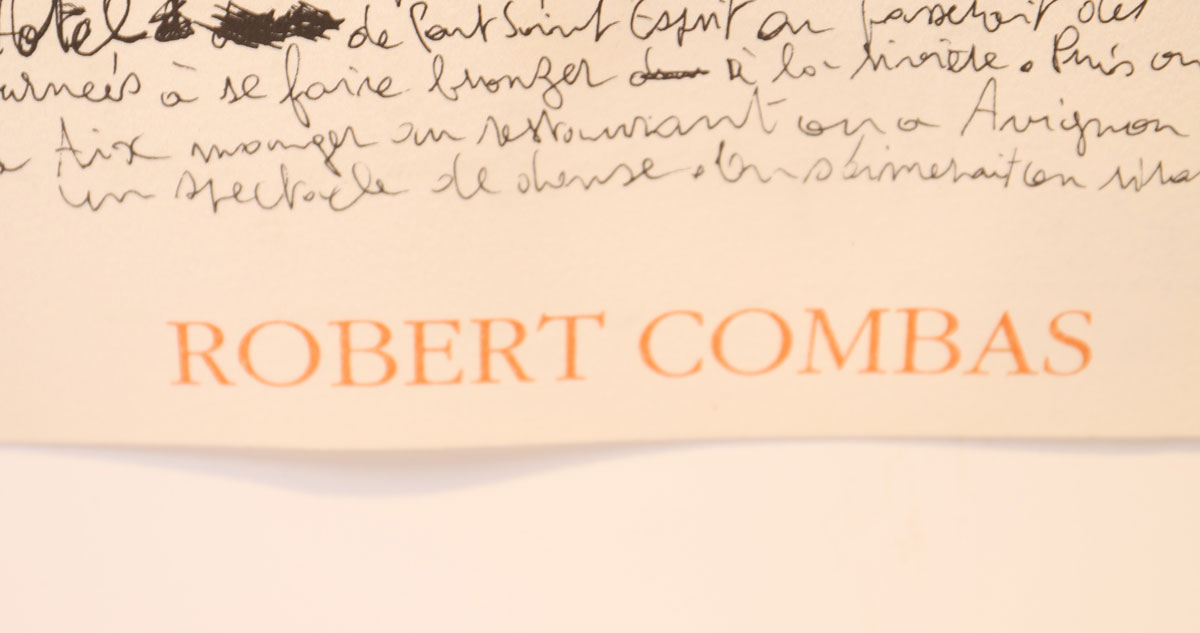 Hotel de Pont Saint Esprit on passerait des
urnées à se faire bronzer à la rivière. Puis on
Aix manger au restaurant ou a Avignon
un spectacle de danse.
ROBERT COMBAS